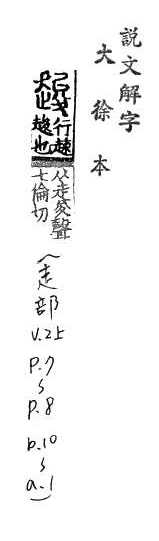 說文解字
大徐本
行
也
从走夋聲
七倫切
(走部
v.2上
p.7
~
p.8
b.10
~
a.1)